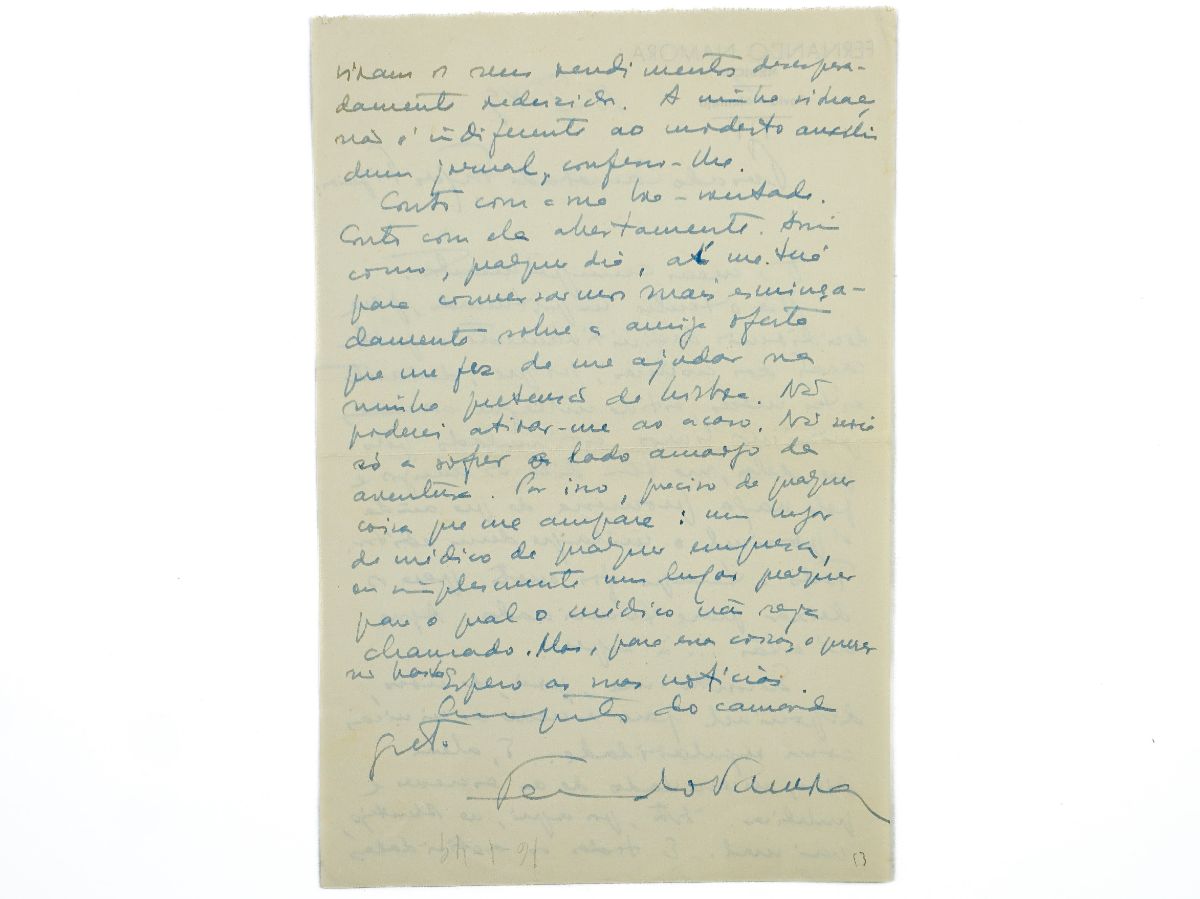 viram os seus rendimentos desespera-
damente reduzidos. A minha vida
não é indiferente ao modesto auxílio
dum jornal, confesso-lhe.
Conto com a sua boa-vontade.
Conto com ela abertamente. Assim
como, qualquer dia, até
para conversarmos mais esmiuça-
damente sobre a amiga oferta
que me fez de me ajudar na
minha pretensão de Lisboa. Não
poderei atirar-me ao acaso. Não seria
só a sofrer o lado amargo da
aventura. Por isso, preciso de qualquer
coisa que me ampare: um lugar
de médico de qualquer empresa,
ou simplesmente um lugar qualquer
para o qual o médico não seja
chamado. Mas, para essas coisas, o querer
não basta.
Espero as suas notícias.
do camarada
grato
Fernando Namora
53
FERNANDO NAMORA